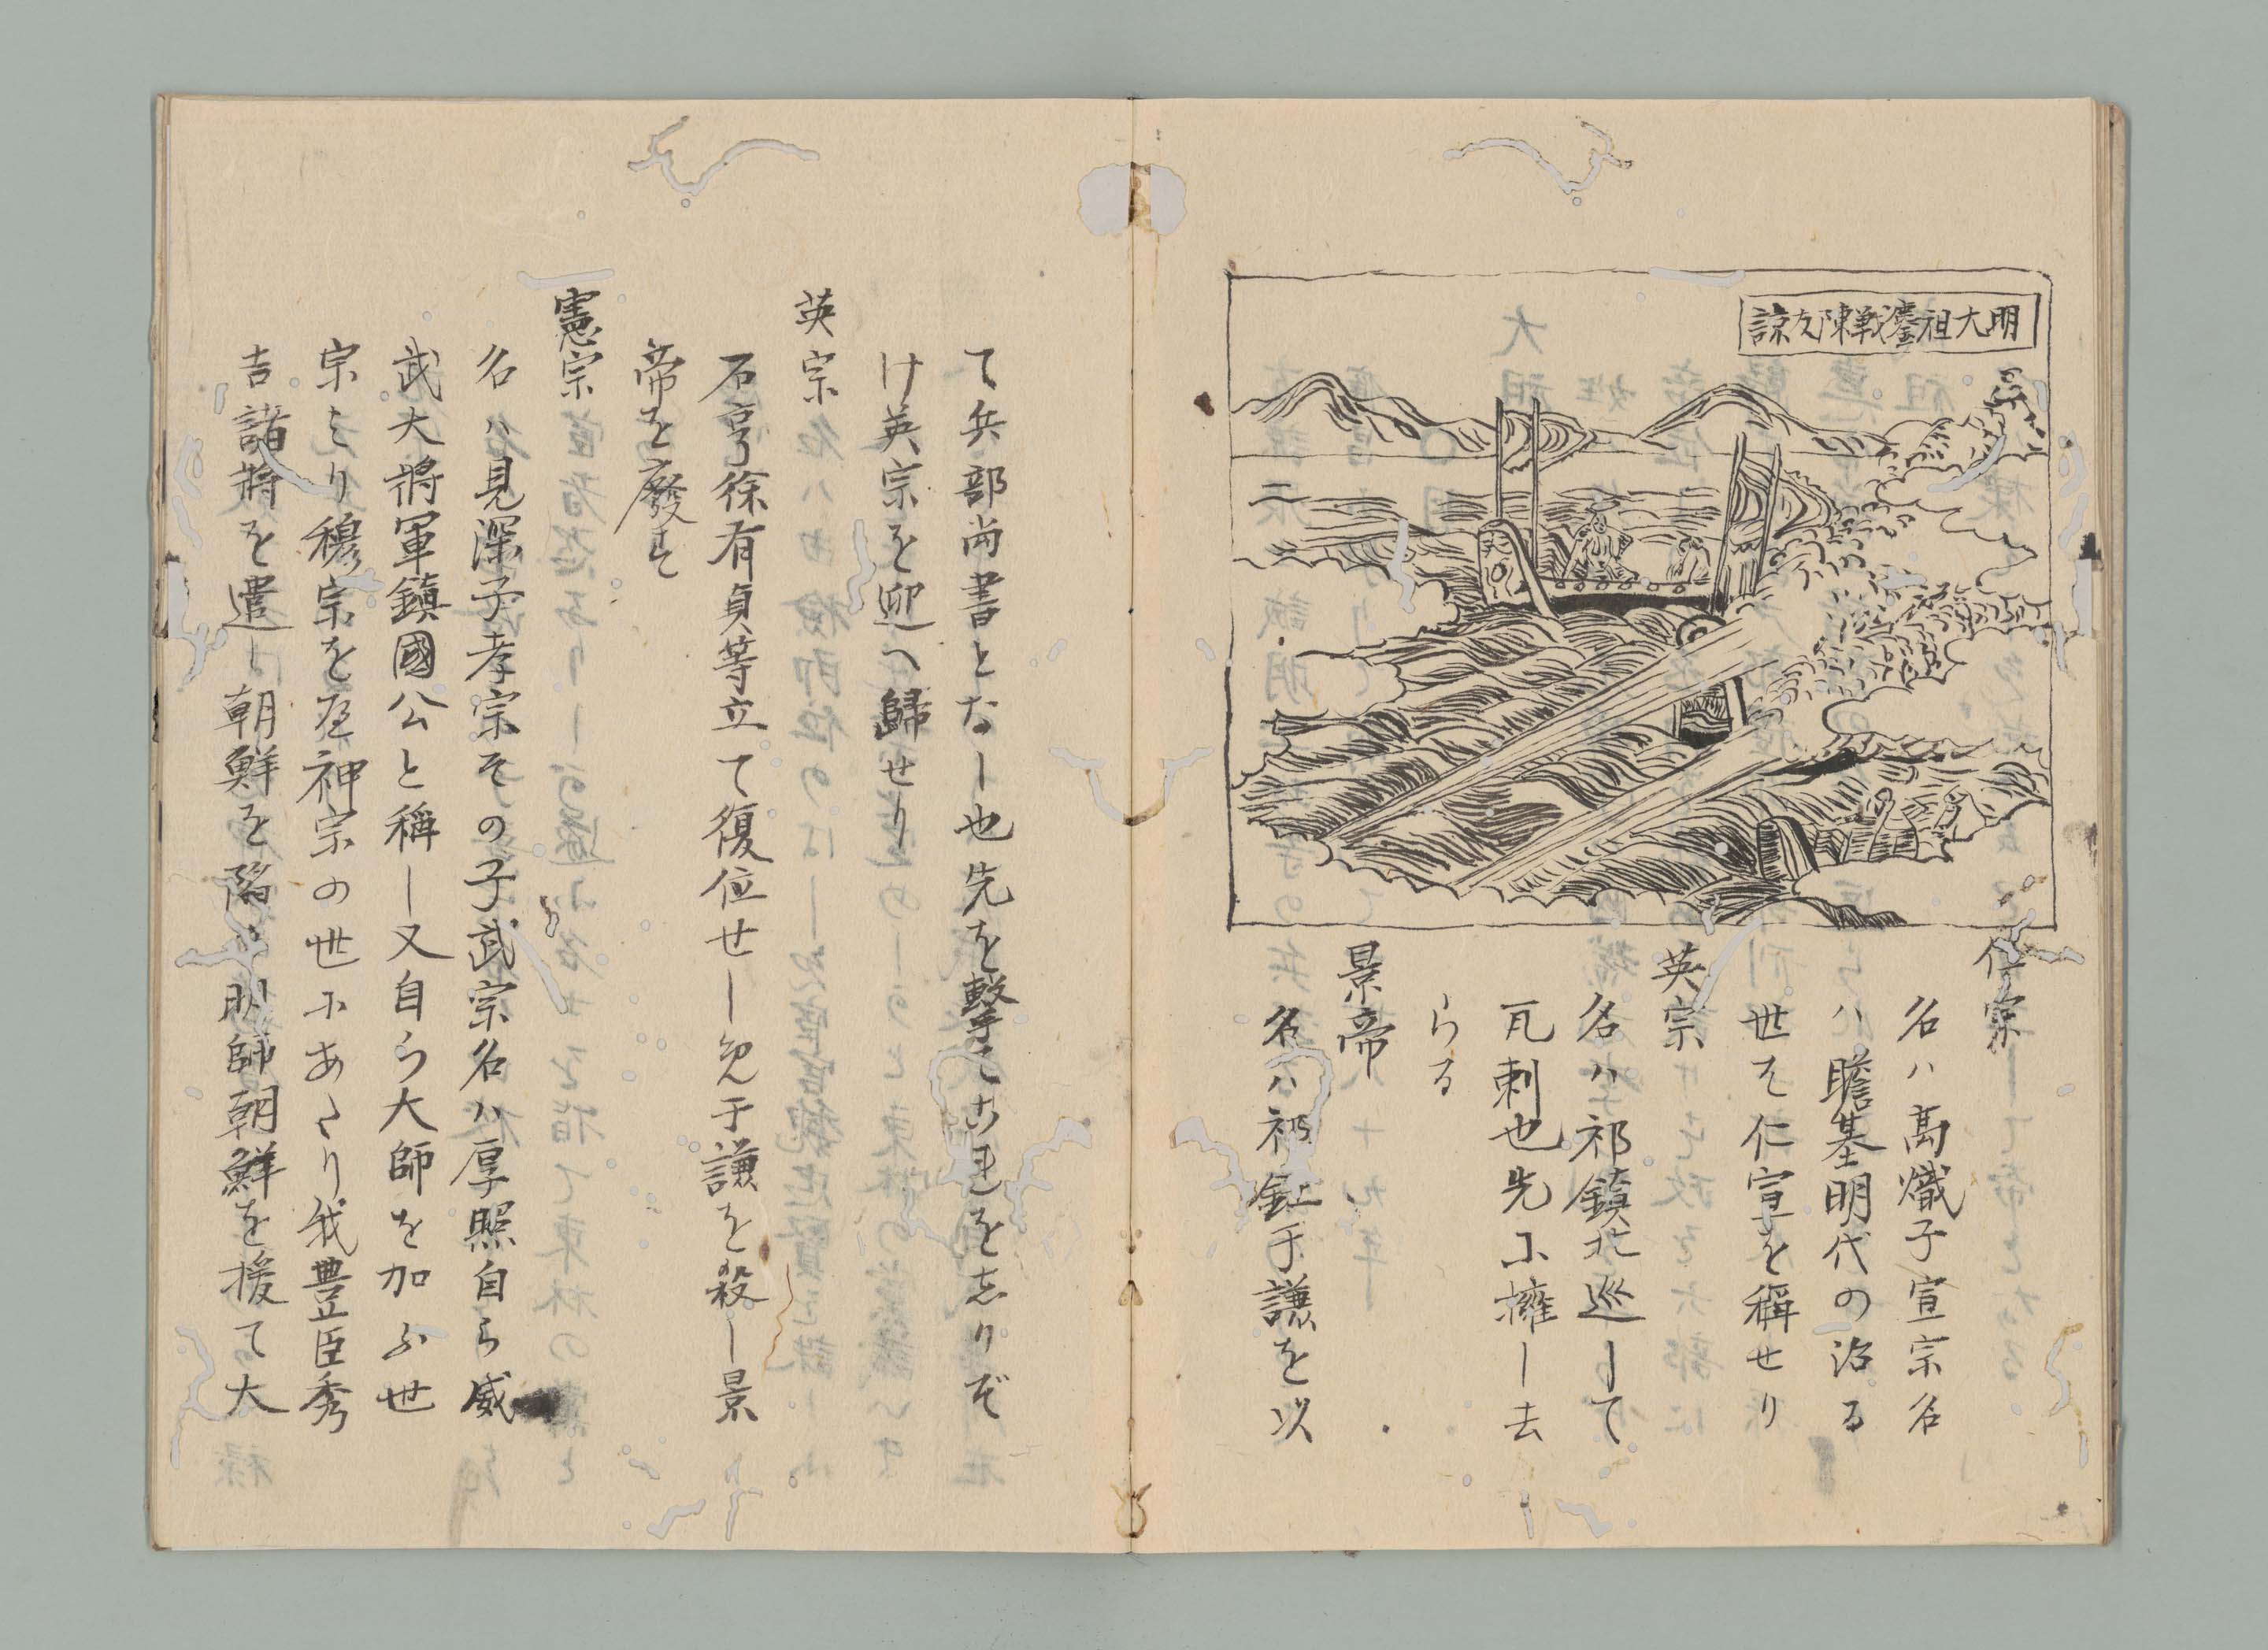 明大祖鏖戦陳友諒
仁宗
名ハ高熾子宣宗名
ハ瞻基明代の治る
世を仁宣を稱せり
英宗
名ハ祁鎮北巡して
瓦剌也先に擁し去
らる
景帝
名ハ祁鈺于謙を以
て兵部尚書となし也先を撃こゝれをしりぞ
け英宗を迎へ歸せり
英宗
石亨徐有貞等立て復位せし免于謙を殺し景
帝を廢す
憲宗
名ハ見深子孝宗その子武宗名ハ厚照自ら威
武大將軍鎮國公と稱し又自ら大師を加ふ世
宗より穆宗を歴神宗の世にあたり我豊臣秀
吉諸將を遣し朝鮮を陥る明師朝鮮を援て大